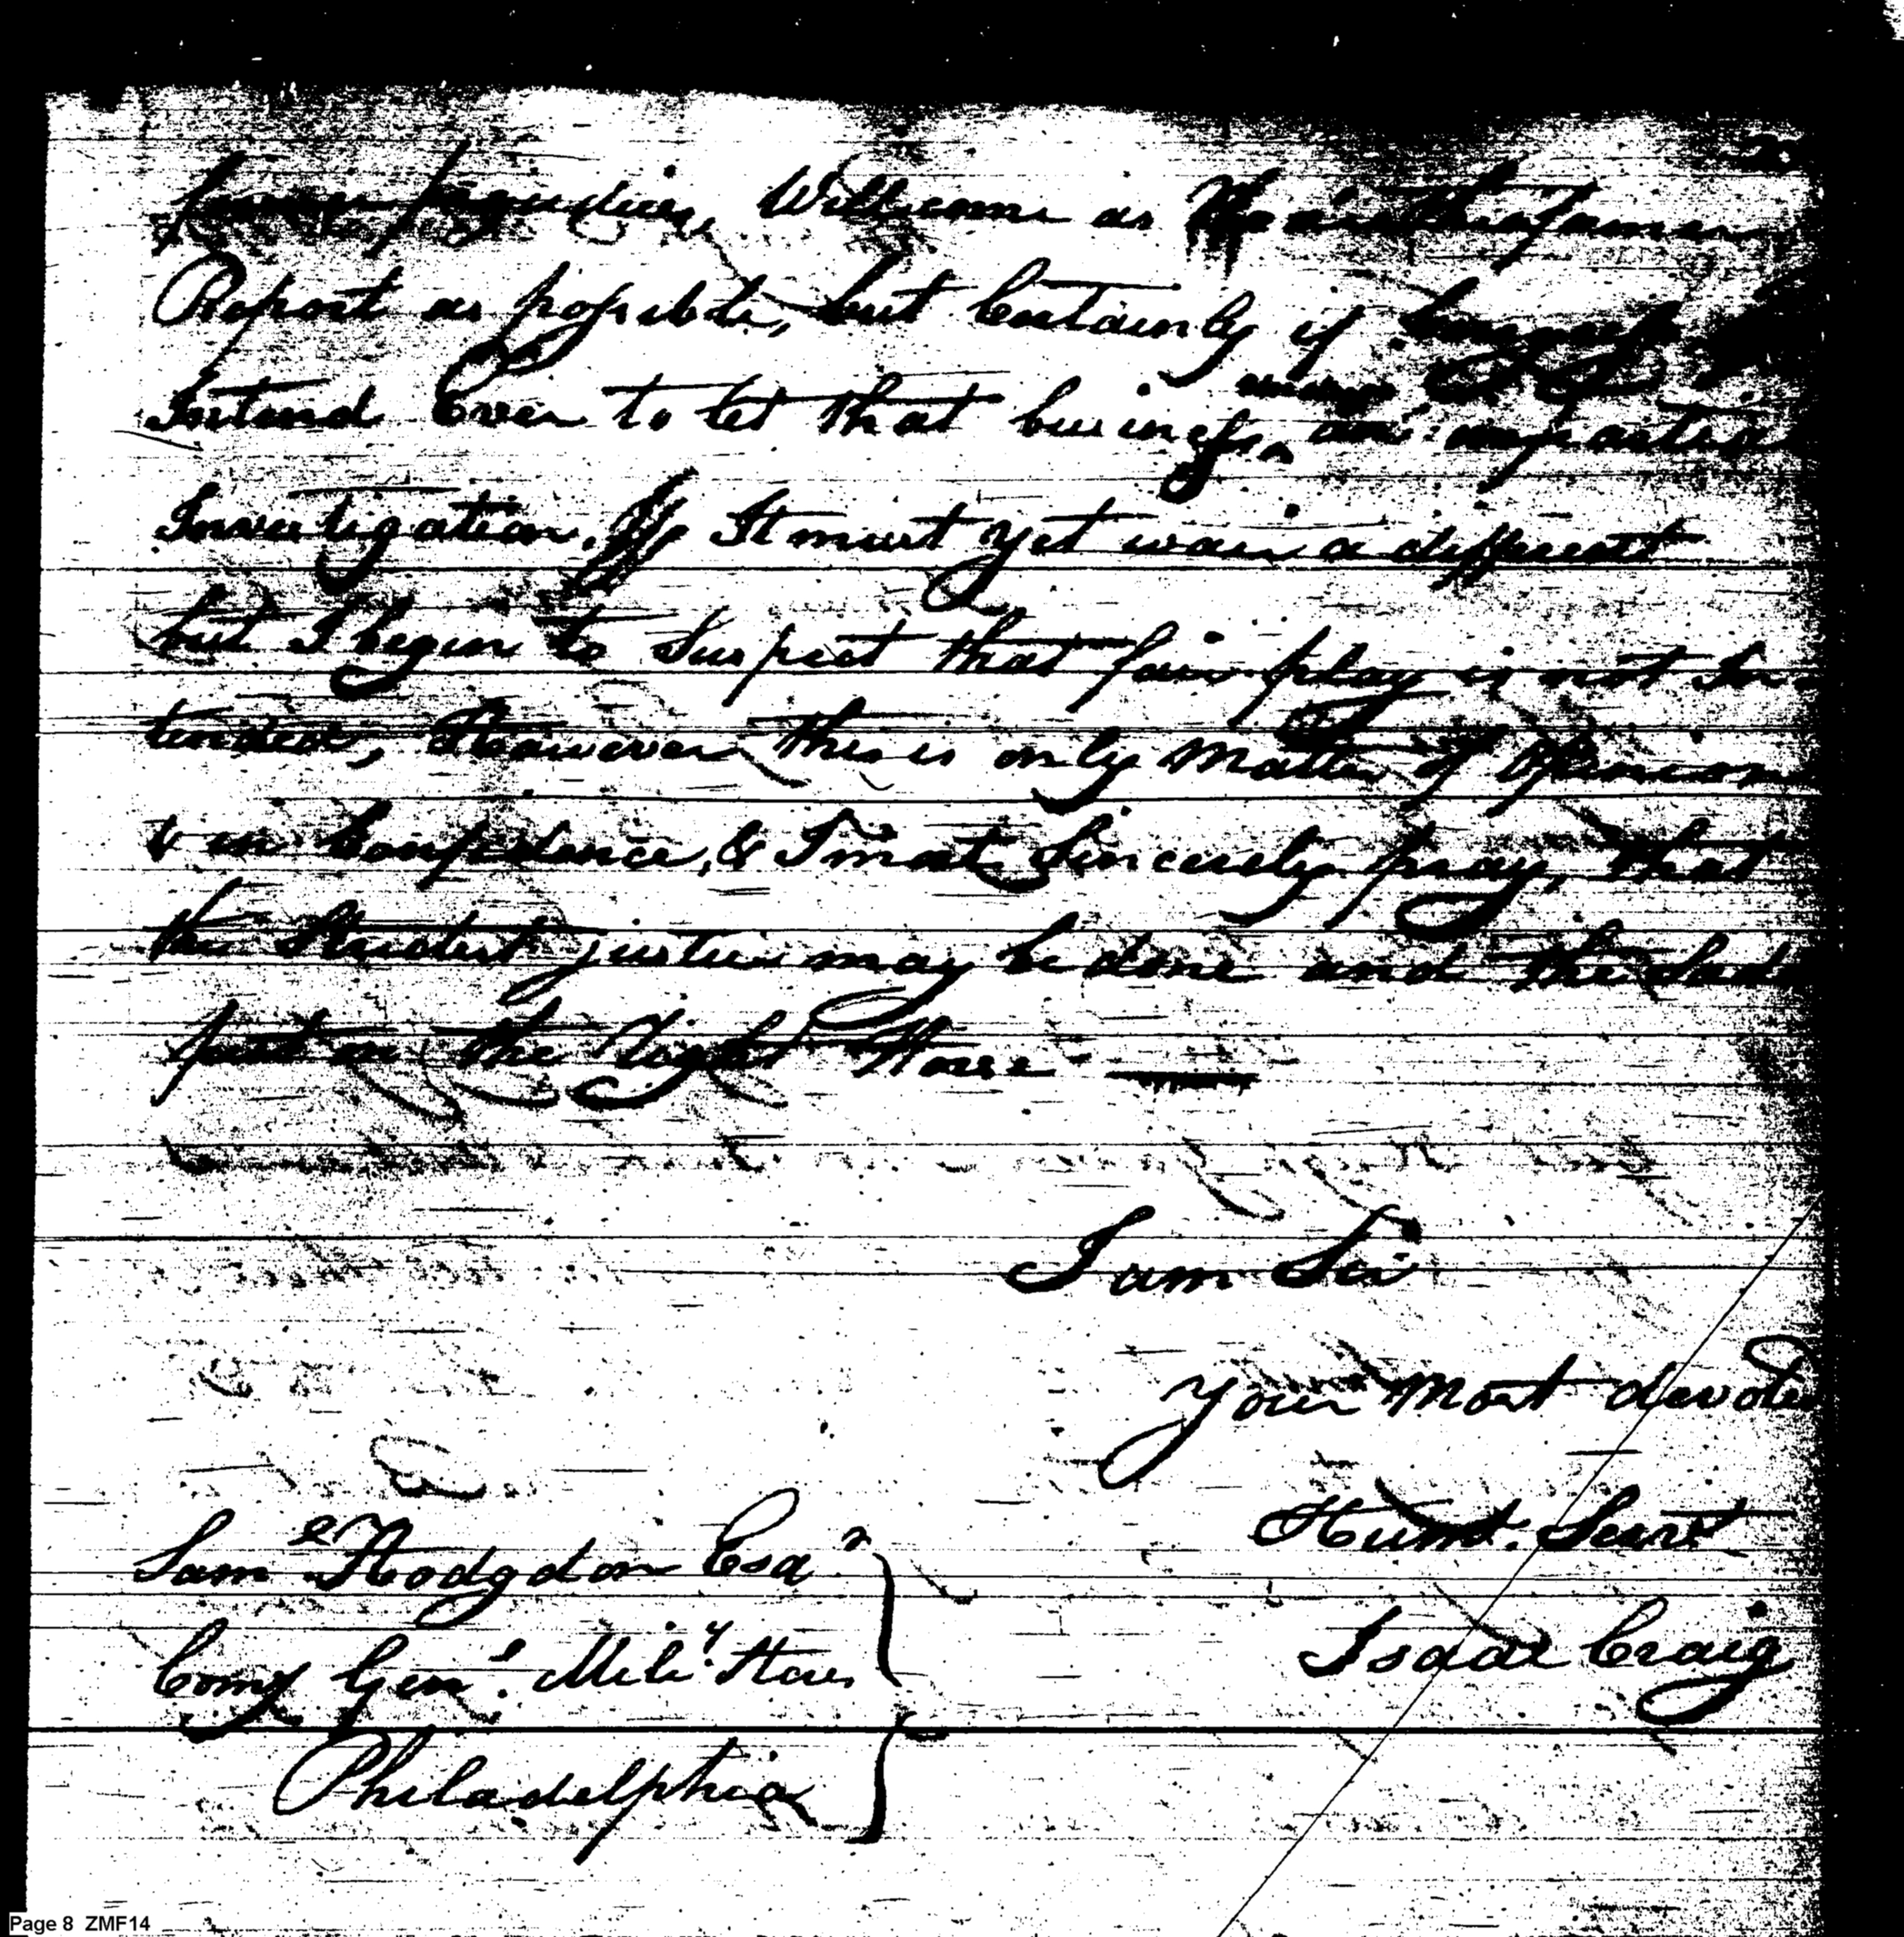 former prejudices, Wellcome as the
Report as possible, but Certainly if Congress
Intend Ever to let that business, an impartial
Investigation, It must yet wair a different
but I begin to Suspect that fair play is not In-
tended, However this is only Matter of Opinion
& in Confidence, & I most Sincerely pray, that
the Strictest justice may be done and the Sad
put on the Right Horse
I am Sir
Your Most devoted
Humb. Servt
Isaac Craig
Saml Hodgdon Esqr
Comy Genl. Mily. Stores
Philadelphia
Page 8 ZMF14